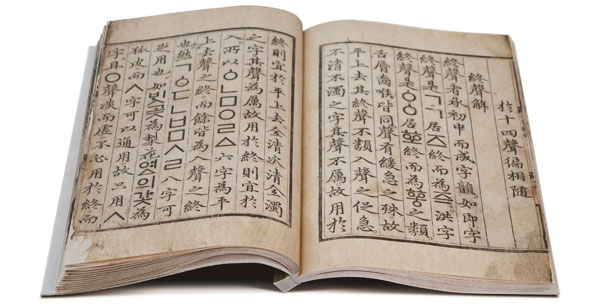 於十四聲徧相隨
終聲解
終聲者承初中而成字韻如即字
終聲是ㄱㄱ居즈終而為즉洪字
終聲是ㆁㆁ居ᅘᅩ終而為ᅘᅩᇰ之類
舌脣齒喉皆同聲有緩急之殊故
平上去其終聲不類入聲之促急
不清不濁之字其聲不厲故用於
終則宜於平上去全清次清全濁
之字其聲為厲故用於終則宜於
入所以ㆁㄴㅁㅇㄹㅿ六字為平
上去聲之終而餘皆為入聲之終
也然ㄱㆁㄷㄴㅂㅁㅅㄹ八字可
足用也如ᄇᆡᆺ곶為梨花여ᇫ의갗為
狐皮而ㅅ字可以通用故只用ㅅ
字且ㅇ聲淡而虛不必用於終而